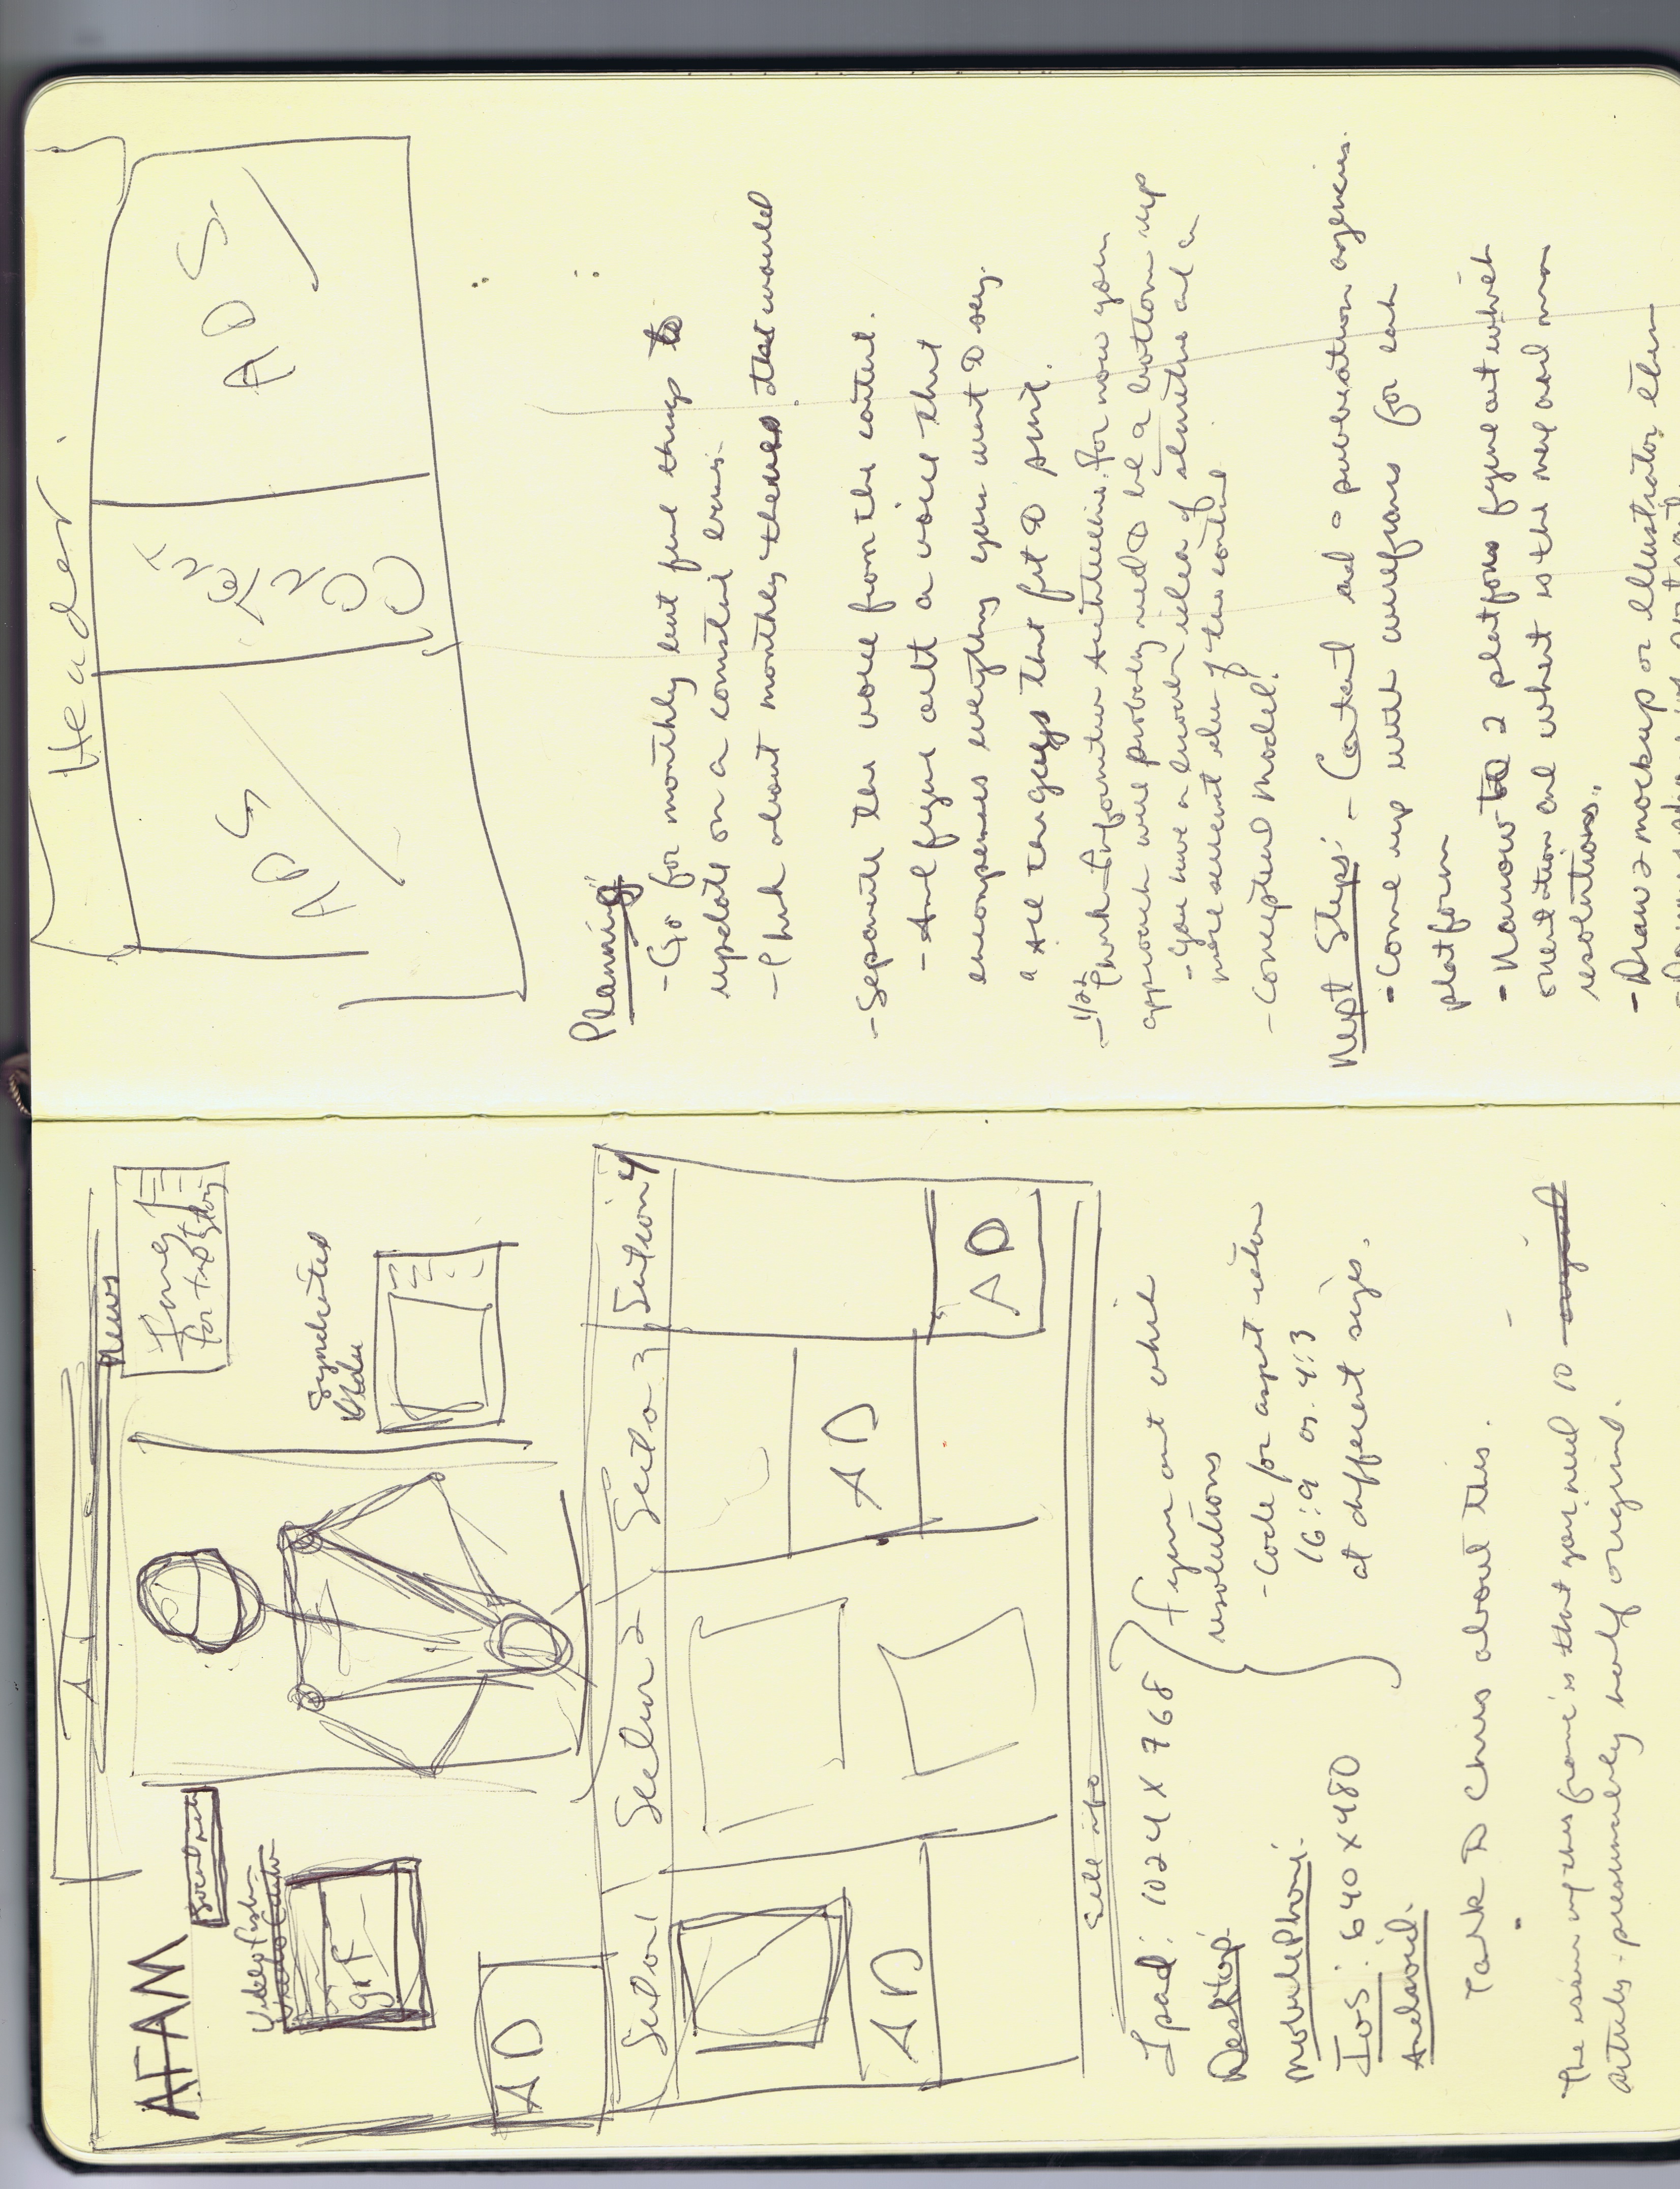 AD
AFAM
Social
News
Img
for top story
Video
gif
Syndicated
Video
AD
Section 1
Section 2
Section 3
Section 4
AD
AD
AD
Site info
Ipad: 1024 X 768
Desktop:
Mobile Phone:
IOS: 640 X 480
Android.
Figure out which
resolutions
- Code for aspect ratio
16:9 or 4:3
at different sizes.
Talk to Chris about this.
The issue w/ this frame is that you need 10
articles - presumably half original.
Header.
ADS
CONTENT
ADS
Planning
- Go for monthly but find things to
update on a constant basis.
- Think about monthly themes that would
- Separate the voice from the content.
- And figure out a voice that
encompasses everything you want to say.
that fit to print.
- 1/22 Think Information Architecture. For now your
approach will probably need to be a bottom up
- You have a broader idea of structure and a
more idea of the content
- Conceptual Model!
Next Steps: - Contact ad publication agencies.
- Come up with wireframes for each
platform
- Narrow to 2 platforms figure out which
orientation and what is the max and min
resolutions.
- Draw mockup or Illustrator them